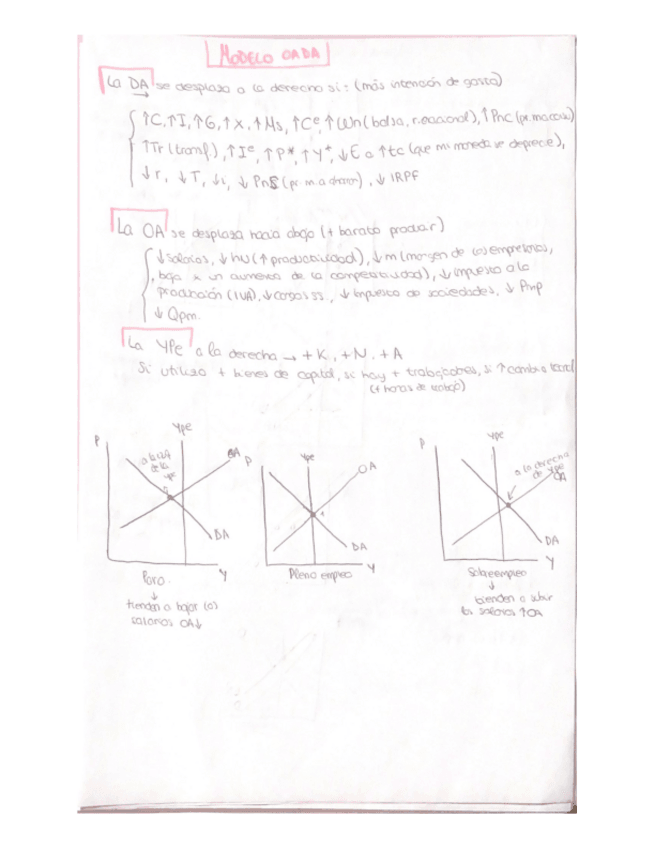 MODELO OADA
La DA se desplaza a la derecha si: (más intención de gasto)
↑C, ↑I, ↑G, ↑X, ↑Ms, ↑Cᵉ, ↑Wn (bolsa, r. nacional), ↑Pnc
↑Tr (transf), ↑Iᵉ, ↑P*, ↑Y*, ↓E o ↑tc (que mi moneda se deprecie),
↓r, ↓T, ↓i, ↓Pn$, ↓IRPF
La OA se desplaza hacia abajo (+ barato producir)
↓salarios, ↓hW (↑productividad), ↓m (margen de los empresarios,
baja x un aumento de la competitividad), ↓impuesto a la
producción (IVA), ↓cargas ss, ↓impuesto de sociedades, ↓Pmp
↓Qpm.
La YPe a la derecha → +K, +N, +A
Si utilizo + bienes de capital, si hay + trabajadores, si ↑cambio
(+ horas de trabajo)
P
Ype
a la izq
de la
Ype
OA
DA
Y
Paro.
↓
tienden a bajar los
salarios OA↓
P
Ype
OA
DA
Y
Pleno empleo
P
Ype
a la derecha
de Ype
OA
DA
Y
Sobreempleo
↓
tienden a subir
los salarios ↑OA